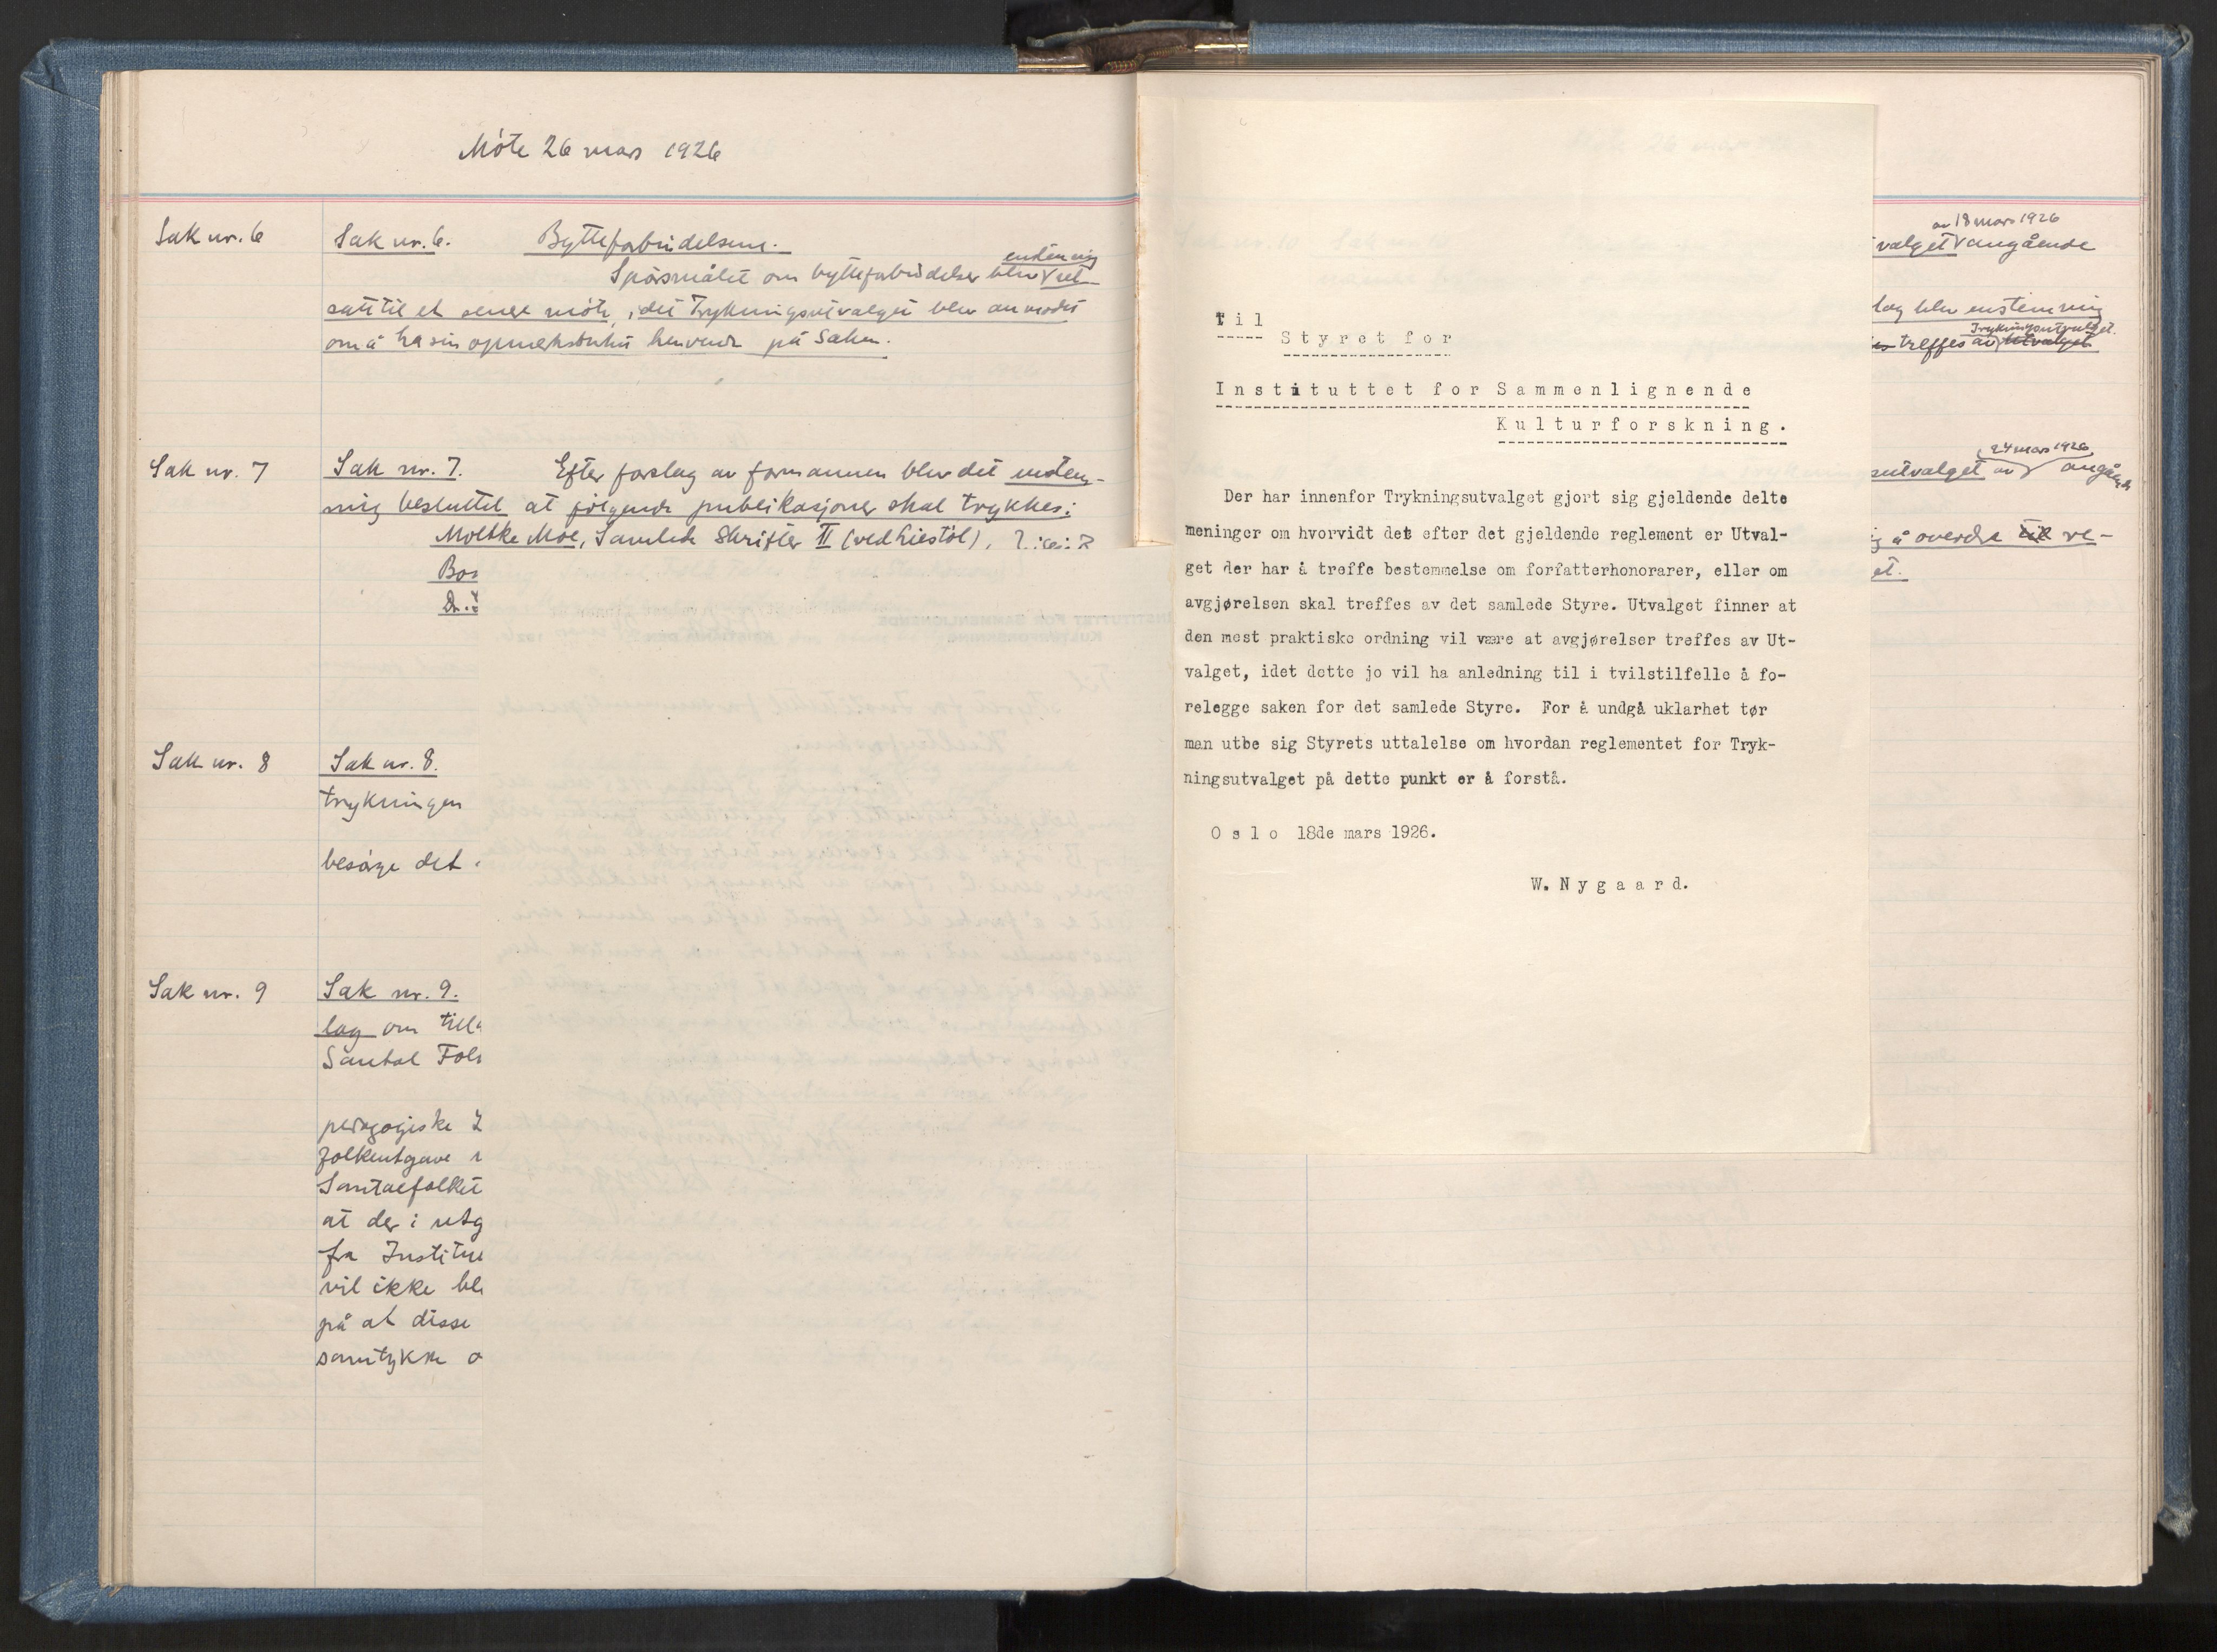 Møte 26 mars 1926
Sak nr. 6
Sak nr. 6. Bytteforbindelsene.
enstemmig
Spørsmålet om bytteforbindelser blev ut-
satt til et senere møte, idet Trykningsutvalget blev anmodet
om å ha sin opmerksomhet henvendt på saken.
Sak nr. 7
Sak nr. 7. Efter forslag av formannen blev det enstem-
mig besluttet at følgende publikasjoner skal trykkes:
Moltke Moe, Samlede Skrifter II (ved Liestøl),
Bos
Dr.
Sak nr. 8
Sak nr. 8.
trykningen
besørge det
Sak nr. 9
Sak nr. 9.
lag om till
Santal Folk
pedagogiske
folkeutgave
Santalfolket
at der i utg
fra Institu
vil ikke bl
på at disse
samtykke
Til
Styret for
Instituttet for Sammenlignende
Kulturforskning.
Der har innenfor Trykningsutvalget gjort sig gjeldende delte
meninger om hvorvidt det efter det gjeldende reglement er Utval-
get der har å treffe bestemmelse om forfatterhonorarer, eller om
avgjørelsen skal treffes av det samlede Styre. Utvalget finner at
den mest praktiske ordning vil være at avgjørelser treffes av Ut-
valget, idet dette jo vil ha anledning til i tvilstilfelle å fo-
relegge saken for det samlede Styre. For å undgå uklarhet tør
man utbe sig Styrets uttalelse om hvordan reglementet for Tryk-
ningsutvalget på dette punkt er å forstå.
Oslo 18de mars 1926.
W. Nygaard.
av 18 mars 1926
valget angående
lag blev enstemmig
Trykningsutvalget.
treffes av Utvalget
24 mars 1926
sutvalget av angående
å overdra til re-
et.